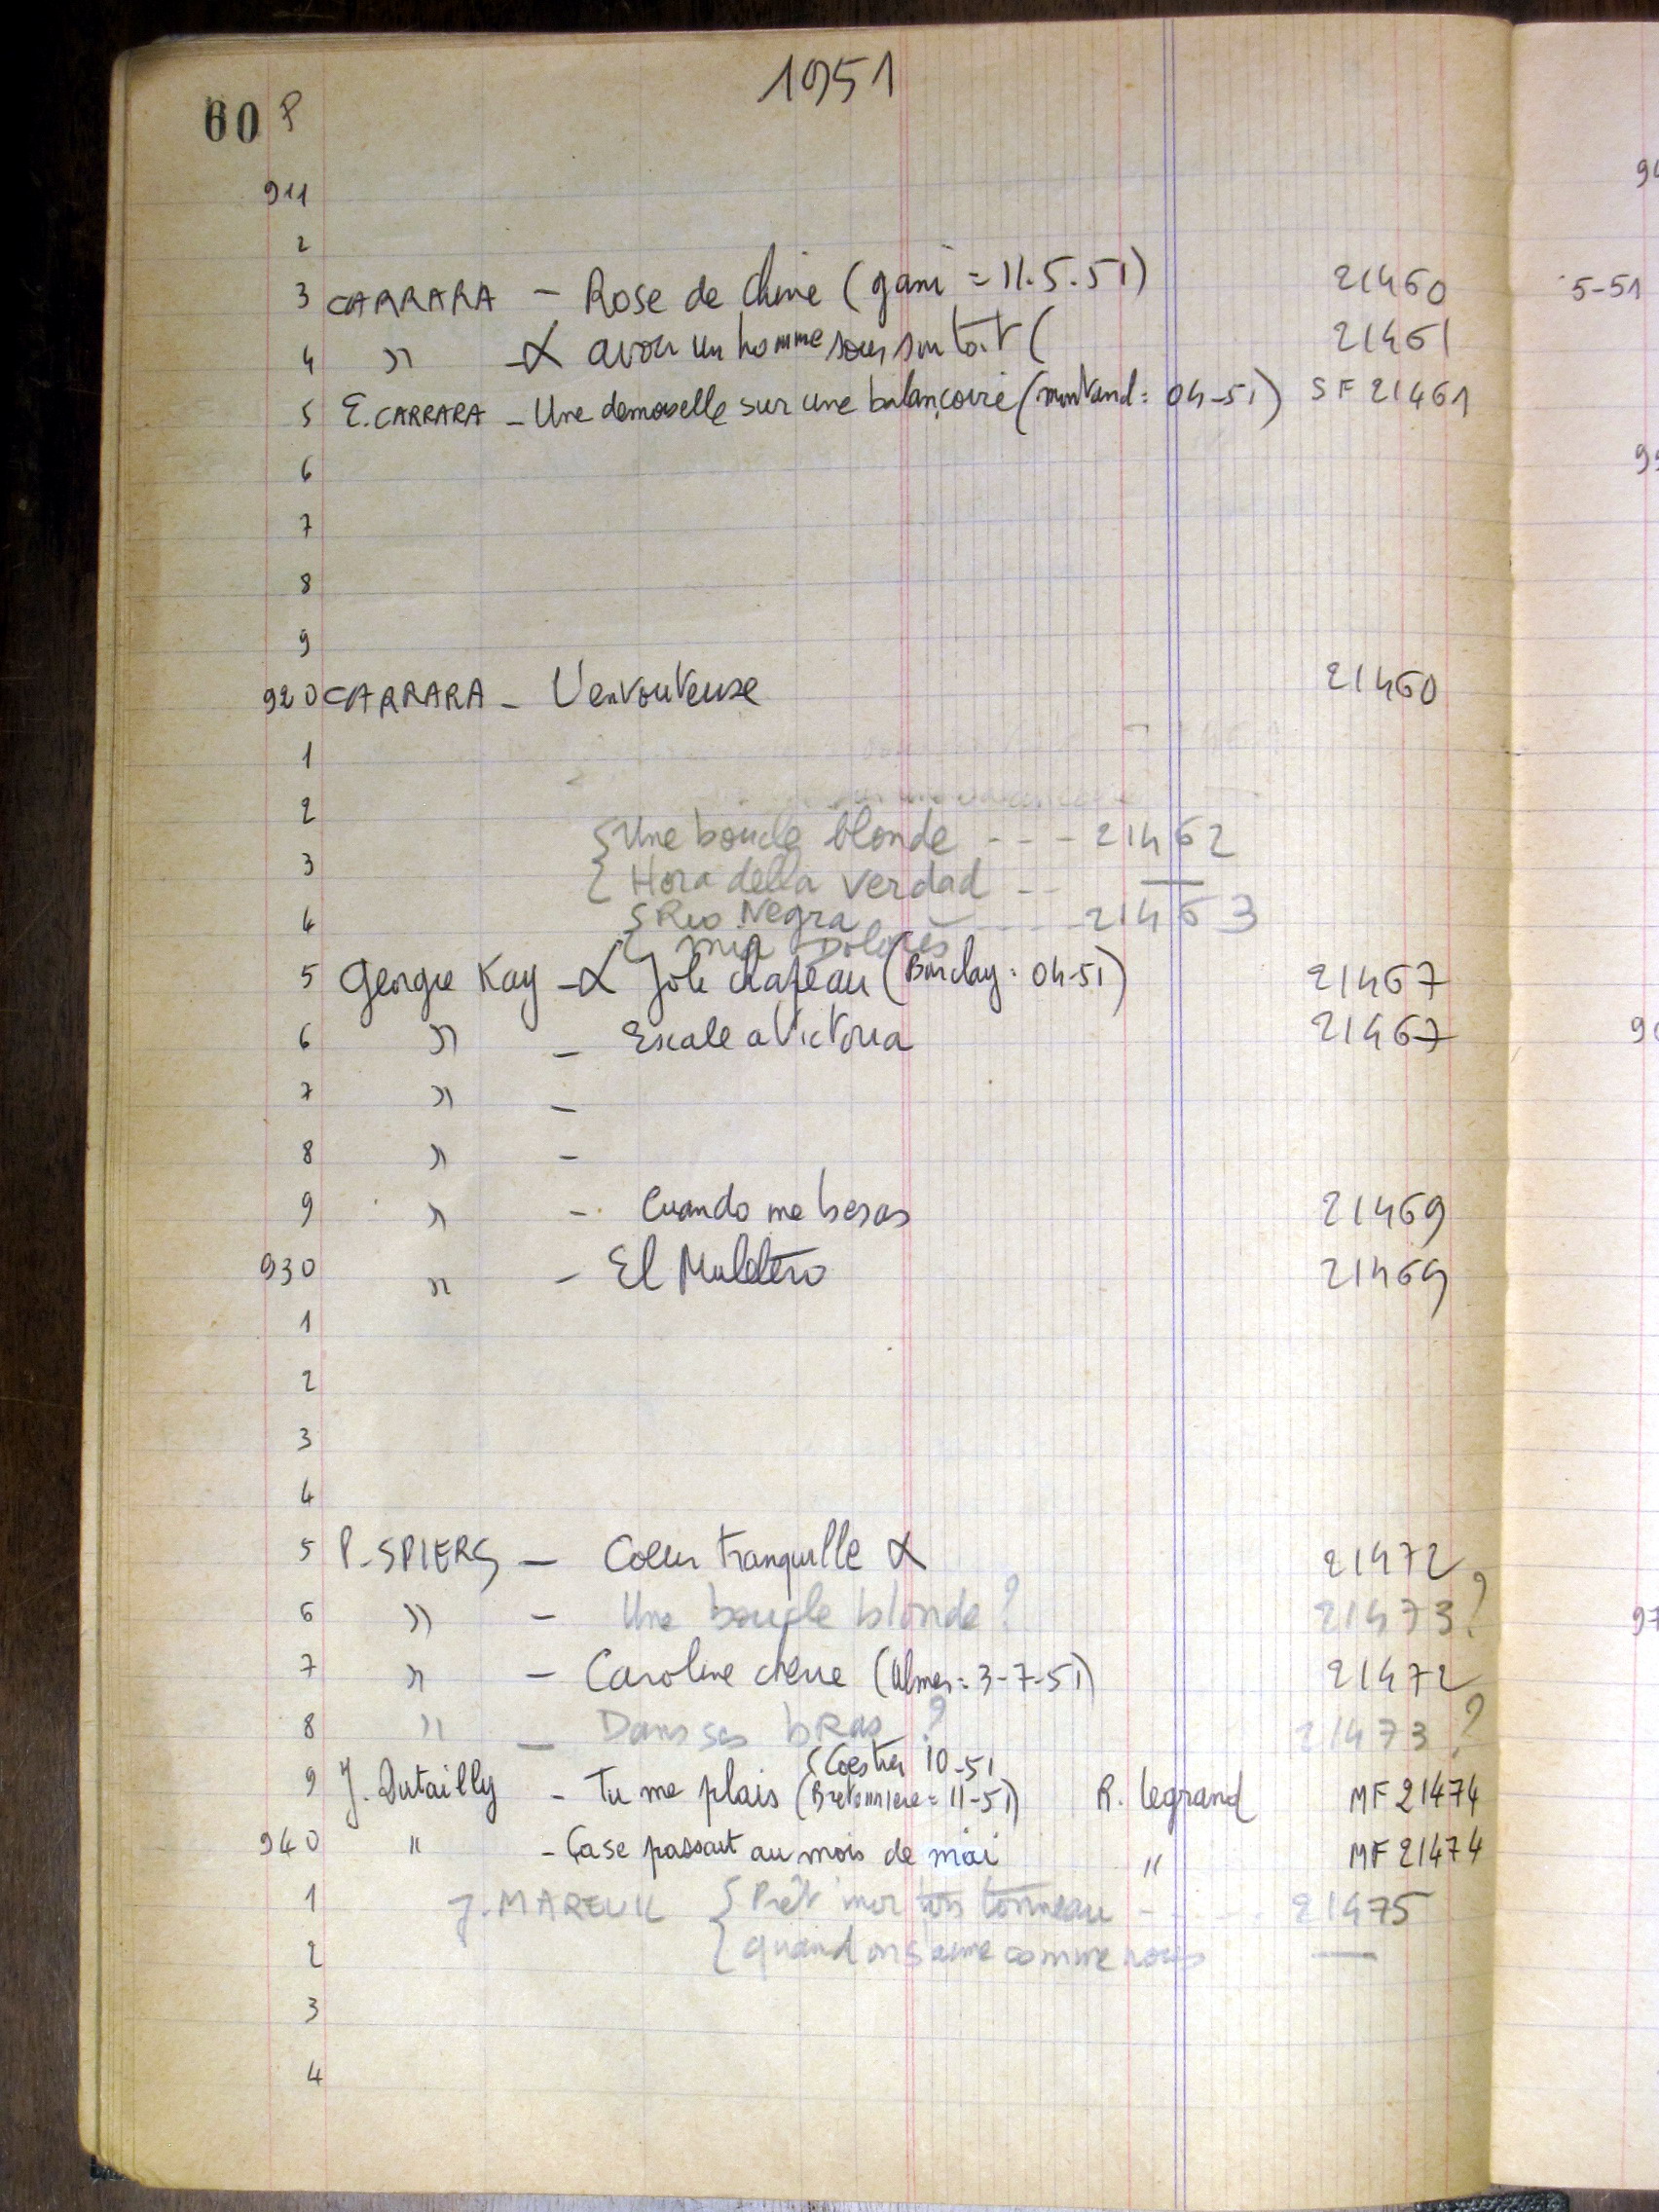 1951
60 P
911
2
3 CARRARA - Rose de chine (gani = 11.5.51) 21460
4 " - α avoir un homme sous son toit ( 21461
5 E. CARRARA - Une demoiselle sur une balançoire (montand: 04-51) SF 21461
6
7
8
9
920 CARRARA - L'envouteuse 21460
1
2
{ Une boucle blonde --- 21462
3 { Hora della verdad --
4 { Rio Negra ---- 21463
{ mia Dolores
5 George Kay - α Joli chapeau (Barclay: 04-51) 21467
6 " - Escale a Victoria 21467
7 " -
8 " -
9 " - Cuando me besas 21469
930 " - El Muletero 21469
1
2
3
4
5 P. SPIERS - Coeur tranquille α 21472
6 " - Une boucle blonde ? 21473 ?
7 " - Caroline cherie (Ulmer = 3-7-51) 21472
8 " - Dans ses bras ? 21473 ?
( Coestier 10-51
9 J. Dutailly - Tu me plais (Bretonniere = 11-51) R. Legrand MF 21474
940 " - Ça se passait au mois de mai " MF 21474
1 J. MAREUIL { Prêt' moi ton tonneau ---- 21475
2 { quand on s'aime comme nous —
3
4
5-51